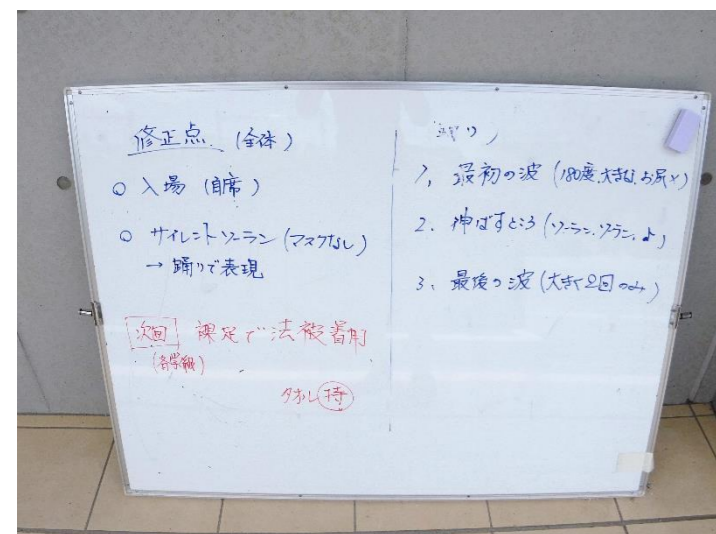 修正点 (全体)
○ 入場 (自席)
○ サイレントソーラン (マスクなし)
→ 踊りで表現
次回 課定で法被着用
(各学級)
タオル 持
踊り
1, 最初の波 (180度、大きな、お尻×)
2. 伸ばすところ (ソーラン、ソーラン、よ)
3. 最後の波 (大きく2回のみ)